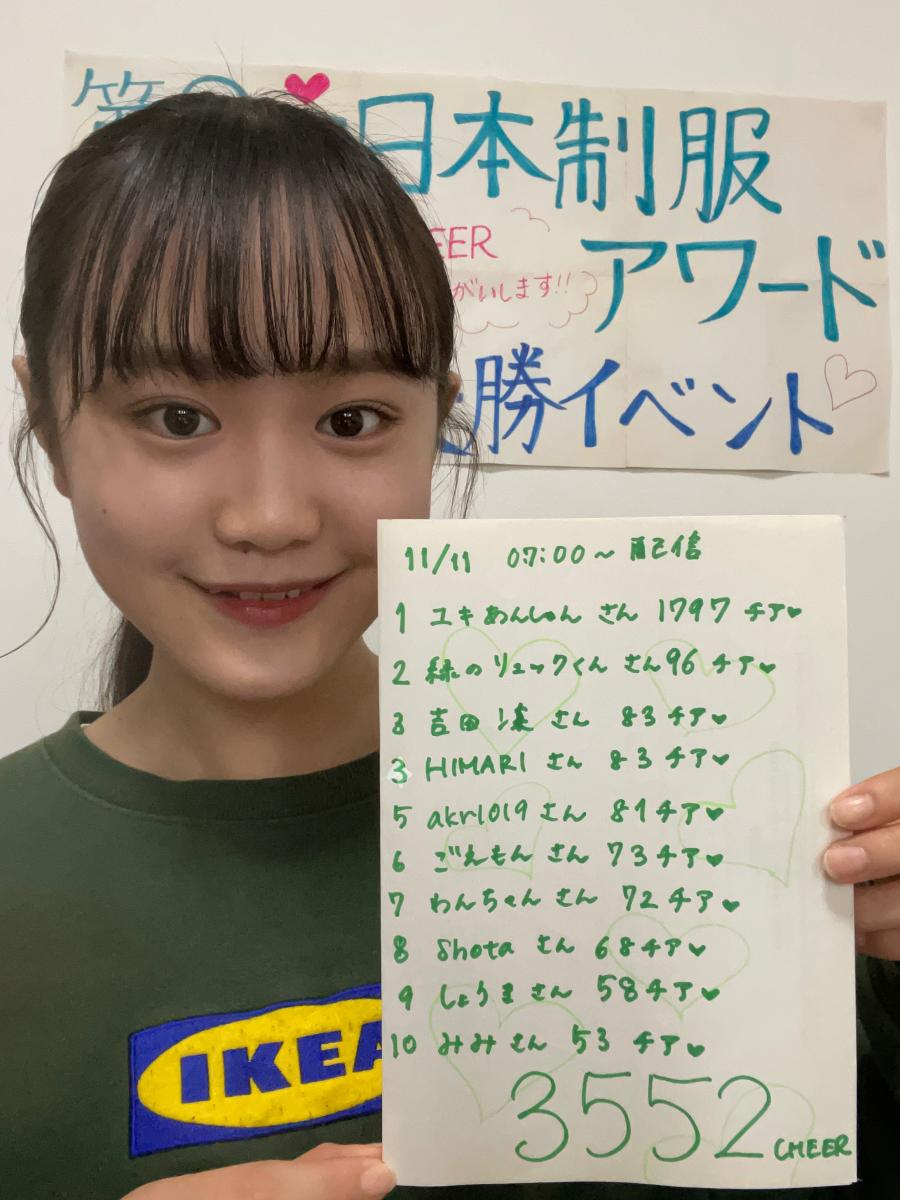 日本制服
EER
がいします!!
アワード
勝イベント
11/11 07:00～配信
1 ユキあんしゅん さん 1797 チア♥
2 緑のリュックくん さん 96 チア♥
3 吉田 湊 さん 83 チア♥
3 HIMARI さん 83 チア♥
5 akr1019 さん 81 チア♥
6 ごえもん さん 73 チア♥
7 わんちゃん さん 72 チア♥
8 Shota さん 68 チア♥
9 しょうま さん 58 チア♥
10 みみ さん 53 チア♥
3552 CHEER
IKEA